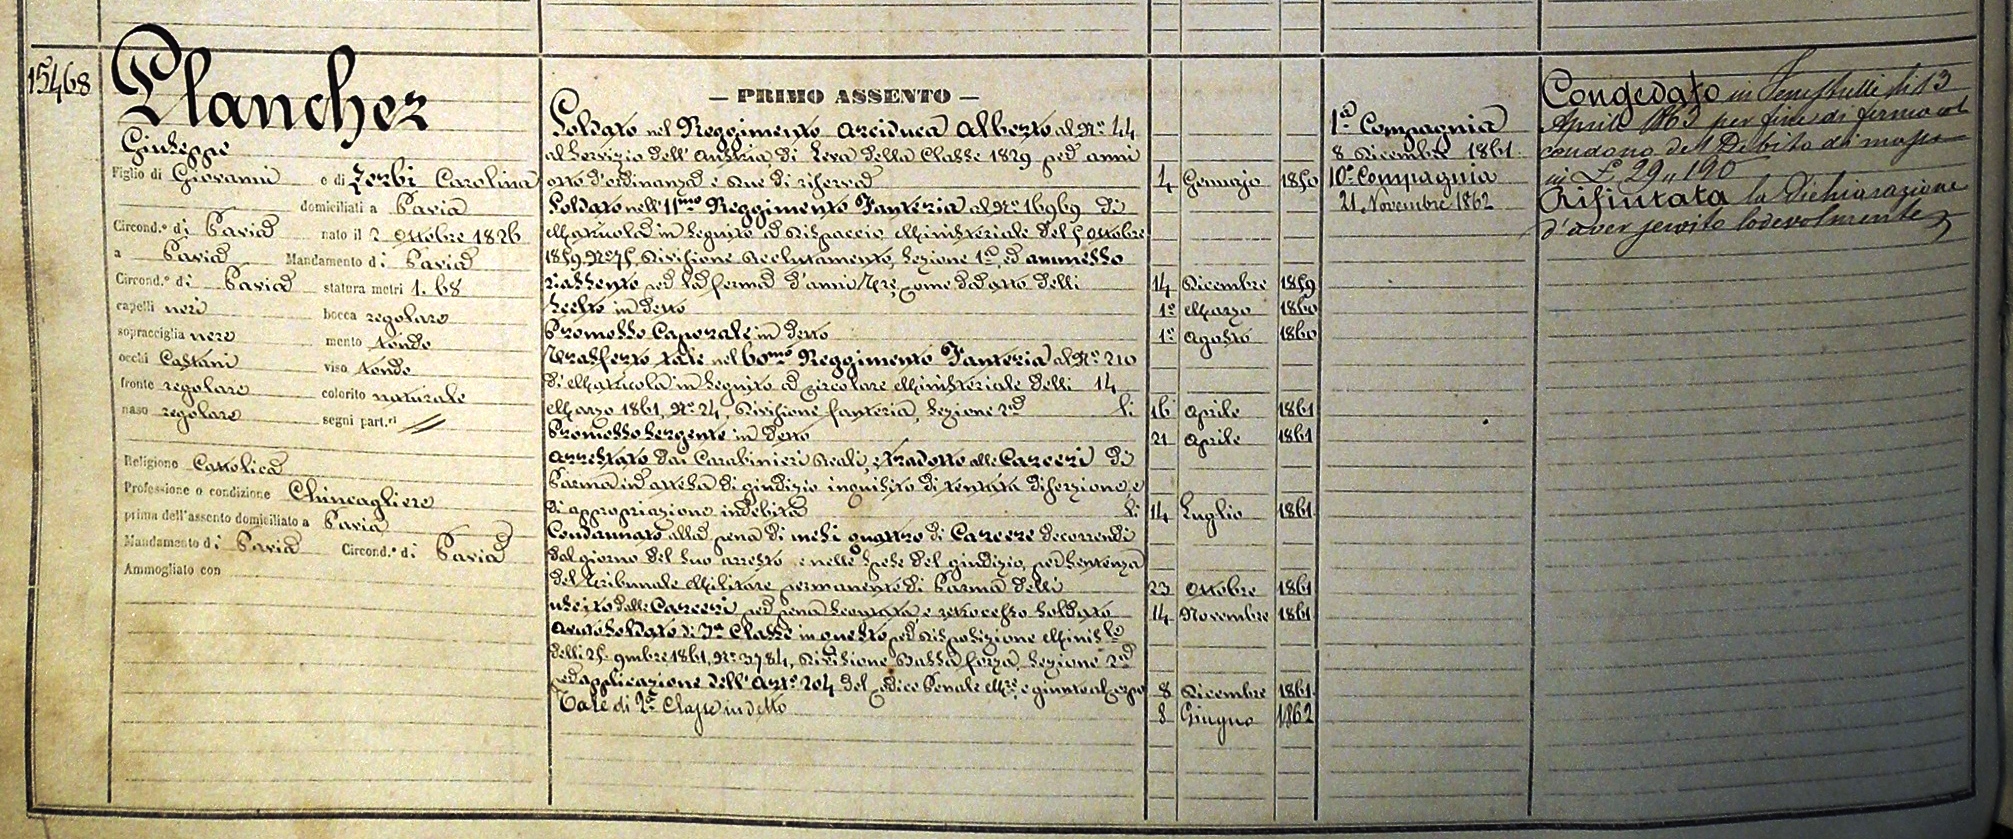 15468
Plancher
Giuseppe
Figlio di Giovanni e di Zerbi Carolina
domiciliati a Pavia
Circond.º di Pavia nato il 2 Ottobre 1826
a Pavia Mandamento di Pavia
Circond.º di Pavia statura metri 1. 68
capelli neri bocca regolare
sopracciglia nere mento tondo
occhi Castani viso tondo
fronte regolare colorito naturale
naso regolare segni part.ri //
Religione Cattolica
Professione o condizione Chincagliere
prima dell'assento domiciliato a Pavia
Mandamento di Pavia Circond.º di Pavia
Ammogliato con
— PRIMO ASSENTO —
Soldato nel Reggimento Arciduca Alberto al Nº 44
al servizio dell'Austria di Leva della Classe 1829 per anni
otto d'ordinanza e due di riserva 4 Gennajo 1850
Soldato nell'11mo Reggimento Fanteria al Nº 16969 di
Matricola in seguito a Dispaccio Ministeriale del 5 Ottobre
1859 Nº 75, Divisione Reclutamento, Sezione 1a, ed ammesso
riassento per la ferma d'anni tre, come da atto delli 14 Dicembre 1859
Scelto in detto 1º Marzo 1860
Promosso Caporale in detto 1º Agosto 1860
Trasferto tale nel 60mo Reggimento Fanteria al Nº 210
di Matricola in seguito a Circolare Ministeriale delli 14
Marzo 1861, Nº 24, Divisione fanteria, Sezione 2a li 16 Aprile 1861
Promosso Sergente in detto 21 Aprile 1861
Arrestato dai Carabinieri Reali, e tradotto alle Carceri di
Parma in attesa di giudizio inquisito di tentata diserzione, e
di appropriazione indebita li 14 Luglio 1861
Condannato alla pena di mesi quattro di Carcere decorrendi
dal giorno del suo arresto e nelle spese del giudizio, per sentenza
del Tribunale Militare permanente di Parma delli 23 Ottobre 1861
Uscito dalle Carceri per pena scontata e retrocesso Soldato 14 Novembre 1861
Avuto Soldato di 3a Classe in questo per Disposizione Minis.le
delli 25 9mbre 1861, Nº 3784, Divisione Bassa forza, Sezione 2a
per applicazione dell'Artº 204 del Codice Penale Mre, e giunto al Corpo 8 Dicembre 1861
Tale di 2a Classe in detto 8 Giugno 1862
1a Compagnia
8 Dicembre 1861
10a Compagnia
21 Novembre 1862
Congedato in Fenestrelle li 13
Aprile 1863 per fine di ferma col
condono del Debito di massa
in £ 29,, 190
Rifiutata la Dichiarazione
d'aver servito lodevolmente